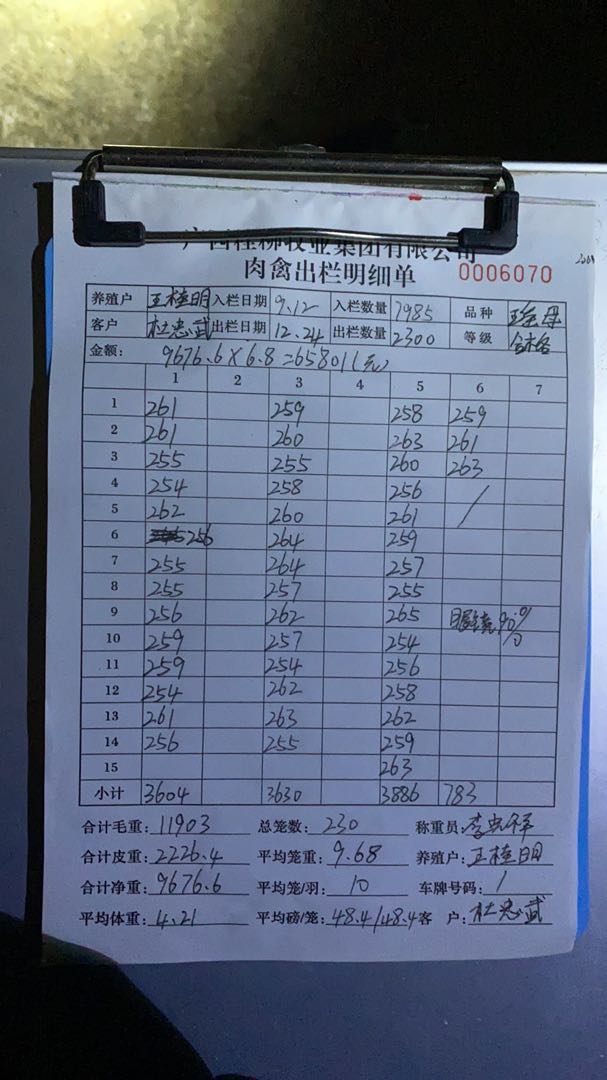 广西桂柳牧业集团有限公司
肉禽出栏明细单 0006070
养殖户 王桂明 入栏日期 9.12 入栏数量 7985 品种
客户 杜忠武 出栏日期 12.24 出栏数量 2300 等级 合格
金额: 9676.6×6.8=65801(元)
1 2 3 4 5 6 7
1 261 259 258 259
2 261 260 263 261
3 255 255 260 263
4 254 258 256 /
5 262 260 261
6 256 264 259
7 255 264 257
8 255 257 255
9 256 262 265 眼镜90%
10 259 257 254
11 259 254 256
12 254 262 258
13 261 263 262
14 256 255 259
15 263
小计 3604 3630 3886 783
合计毛重: 11903 总笼数: 230 称重员:
合计皮重: 2226.4 平均笼重: 9.68 养殖户: 王桂明
合计净重: 9676.6 平均笼/羽: 10 车牌号码: /
平均体重: 4.21 平均磅/笼: 48.4/48.4 客 户: 杜忠武